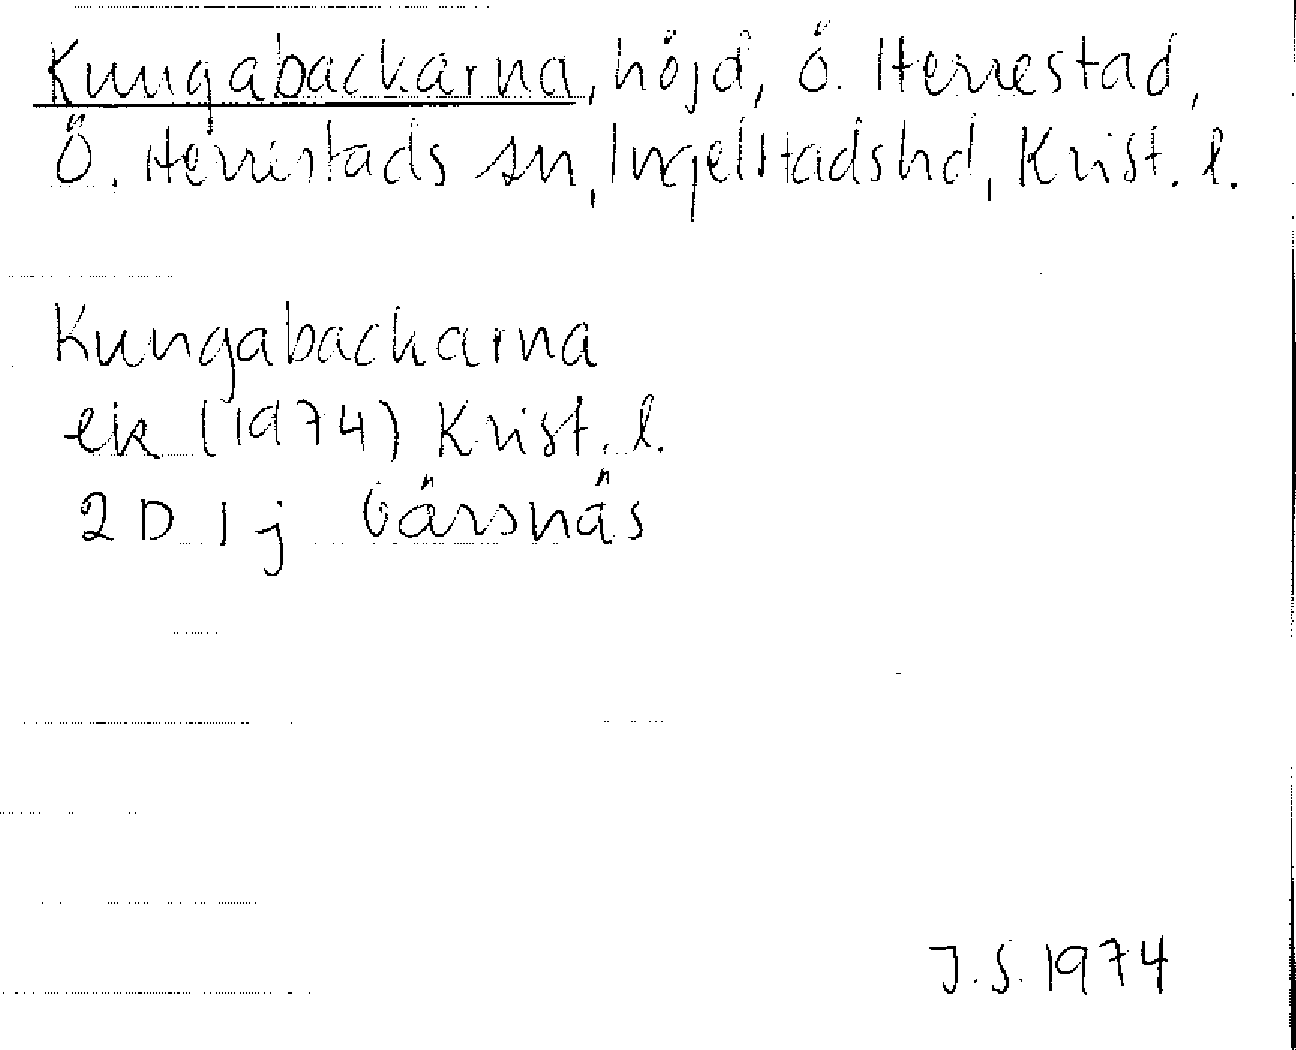 Kungabackarna, höjd, Ö. Herrestad,
Ö. Herrestads sn, Ingelstadshd, Krist. l.
Kungabackarna
ek (1974) Krist. l.
2D 1j Gärsnäs
J.S. 1974